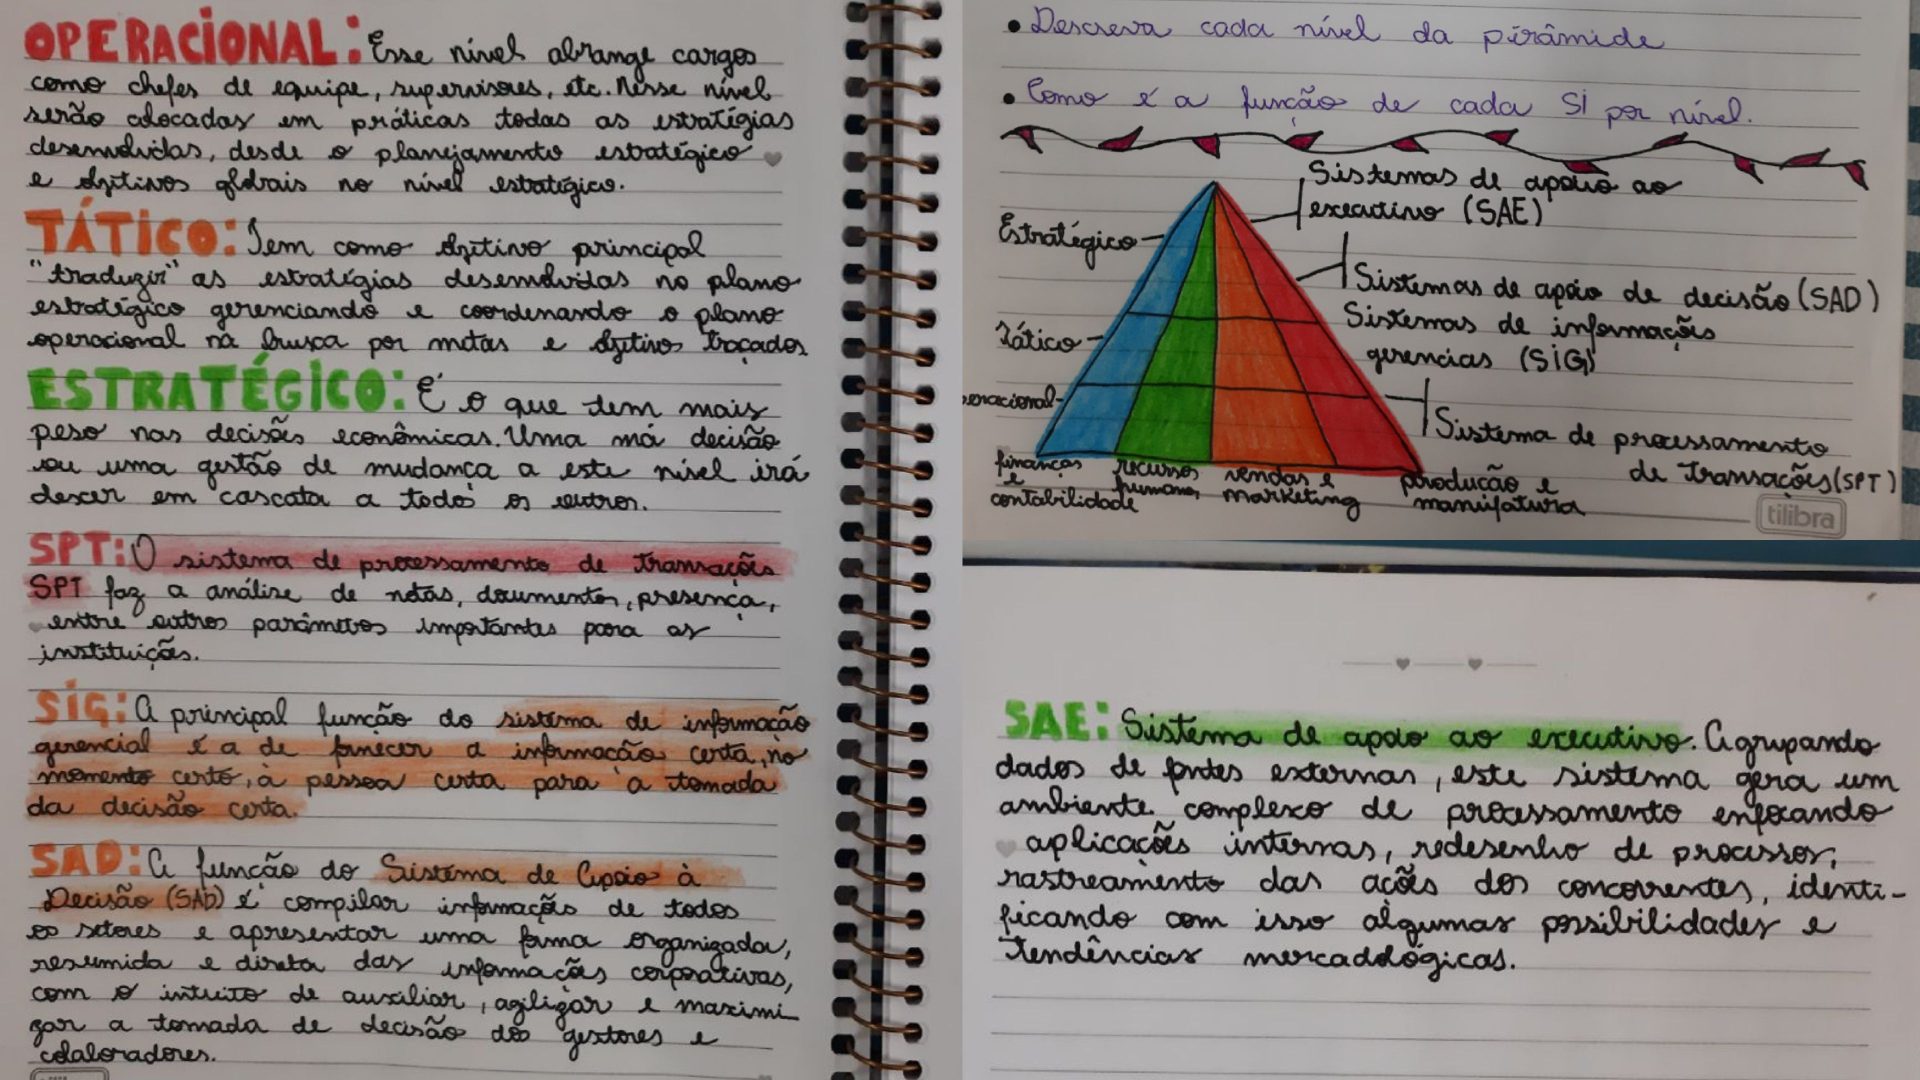 OPERACIONAL: Esse nível abrange cargos
como chefes de equipe, supervisores, etc. Nesse nível
serão colocadas em práticas todas as estratégias
desenvolvidas, desde o planejamento estratégico
e objetivos globais no nível estratégico.
TÁTICO: Tem como objetivo principal
"traduzir" as estratégias desenvolvidas no plano
estratégico gerenciando e coordenando o plano
operacional na busca por metas e objetivos traçados
ESTRATÉGICO: É o que tem mais
peso nas decisões econômicas. Uma má decisão
ou uma gestão de mudança a este nível irá
descer em cascata a todos os outros.
SPT: O sistema de processamento de transações
SPT faz a análise de notas, documentos, presença,
entre outros parâmetros importantes para as
instituições.
SIG: A principal função do sistema de informação
gerencial é a de fornecer a informação certa, no
momento certo, à pessoa certa para a tomada
da decisão certa.
SAD: A função do Sistema de Apoio à
Decisão (SAD) é compilar informações de todos
os setores e apresentar uma forma organizada,
resumida e direta das informações corporativas,
com o intuito de auxiliar, agilizar e maximi
zar a tomada de decisão dos gestores e
colaboradores.
• Descreva cada nível da pirâmide
• Como é a função de cada SI por nível.
Sistemas de apoio ao
executivo (SAE)
Estratégico
Sistemas de apoio de decisão (SAD)
Sistemas de informações
gerencias (SIG)
Tático
eracional
Sistema de processamento
de transações (SPT)
finanças
e
contabilidade
recursos
humanos
vendas e
marketing
produção e
manufatura
tilibra
SAE: Sistema de apoio ao executivo. Agrupando
dados de fontes externas, este sistema gera um
ambiente complexo de processamento enfocando
aplicações internas, redesenho de processos,
rastreamento das ações dos concorrentes, identi-
ficando com isso algumas possibilidades e
tendências mercadológicas.